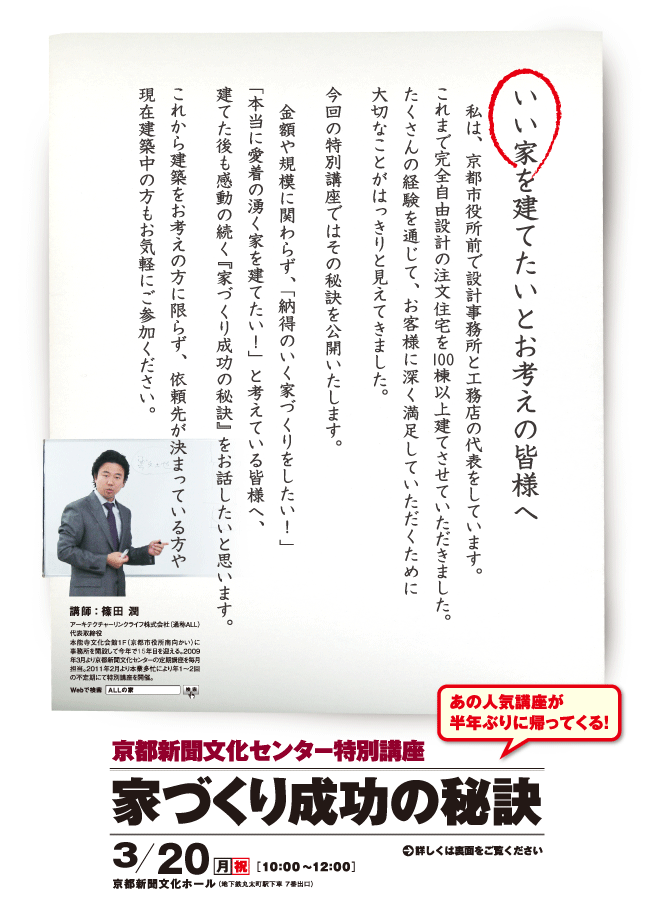 いい家を建てたいとお考えの皆様へ
私は、京都市役所前で設計事務所と工務店の代表をしています。
これまで完全自由設計の注文住宅を100棟以上建てさせていただきました。
たくさんの経験を通じて、お客様に深く満足していただくために
大切なことがはっきりと見えてきました。
今回の特別講座ではその秘訣を公開いたします。
金額や規模に関わらず、「納得のいく家づくりをしたい！」
「本当に愛着の湧く家を建てたい！」と考えている皆様へ、
建てた後も感動の続く『家づくり成功の秘訣』をお話したいと思います。
これから建築をお考えの方に限らず、依頼先が決まっている方や
現在建築中の方もお気軽にご参加ください。
講師：篠田 潤
アーキテクチャーリンクライフ株式会社（通称ALL）
代表取締役
本能寺文化会館1F（京都市役所南向かい）に
事務所を開設して今年で15年目を迎える。2009
年3月より京都新聞文化センターの定期講座を毎月
担当。2011年2月より本業多忙により年1～2回
の不定期にて特別講座を開催。
Webで検索 ALLの家 検索
あの人気講座が
半年ぶりに帰ってくる！
京都新聞文化センター特別講座
家づくり成功の秘訣
3/20 月 祝 ［10:00～12:00］
詳しくは裏面をご覧ください
京都新聞文化ホール（地下鉄丸太町駅下車 7番出口）